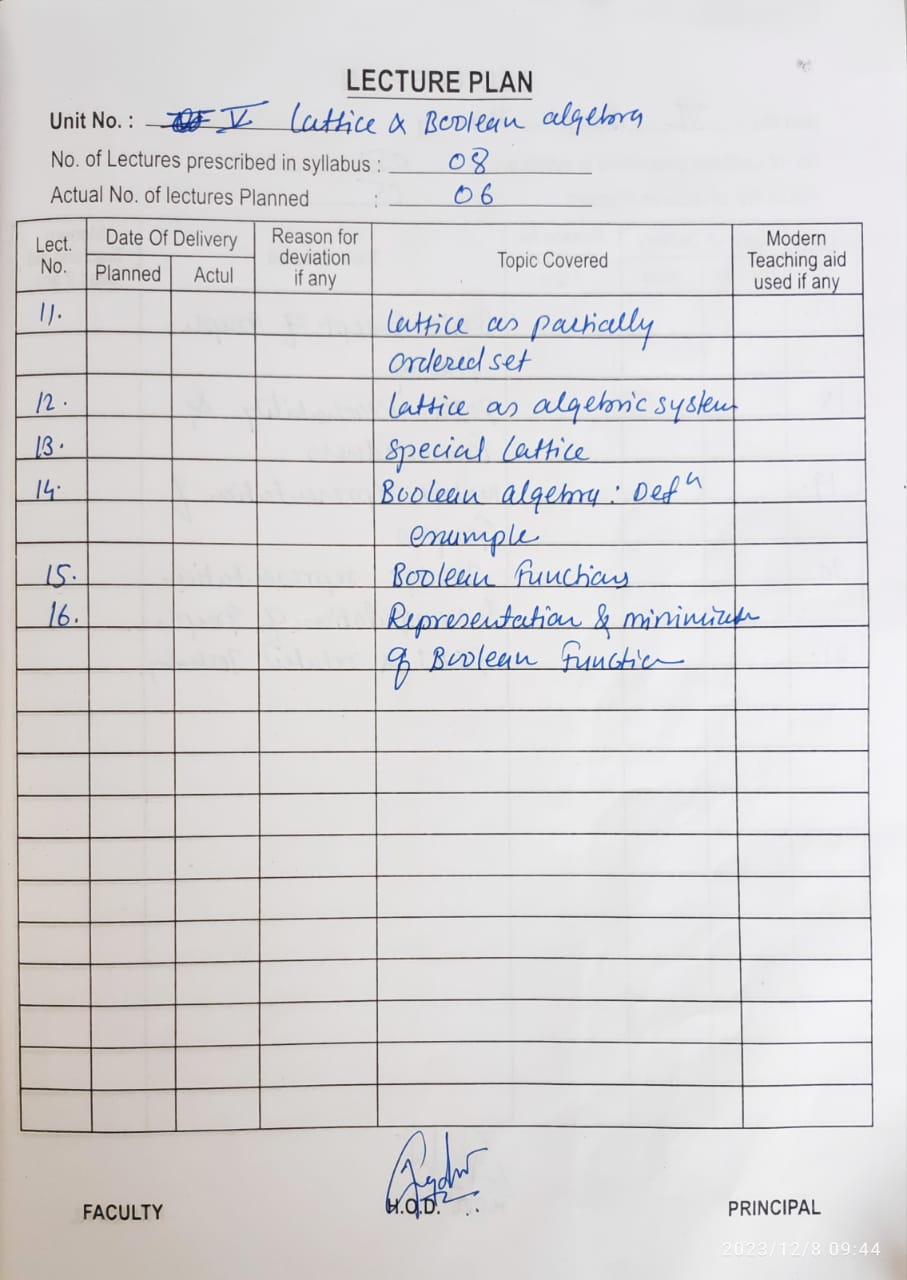 LECTURE PLAN
Unit No. : V Lattice & Boolean algebra
No. of Lectures prescribed in syllabus : 08
Actual No. of lectures Planned : 06
Lect. No. Date Of Delivery Reason for deviation if any Topic Covered Modern Teaching aid used if any
Planned Actul
11. Lattice as partially
ordered set
12. Lattice as algebric system
13. Special Lattice
14. Boolean algebra : Defⁿ
example
15. Boolean Functions
16. Representation &
of Boolean Function
FACULTY H.O.D. PRINCIPAL
2023/12/8 09:44